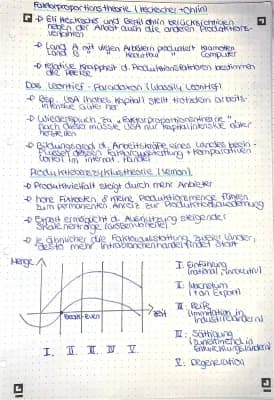 Faktorproportionstheorie (Heckscher + Ohlin)
Eli Heckscher und Bertil Ohlin berücksichtigen
neben der Arbeit auch die anderen Produktions-
Land A mit vielen Arbeitern produziert Krametten
Land B " " Kapital " Computer
relative Knappheit d. Produktionsfaktoren bestimmen
die Preise
Das Leontief-Paradoxon (Wassily Leontief)
Bsp. USA (hohes Kapital) stellt trotzdem arbeits-
intensive Güter her
Widerspruch zu "Faktorproportionentheorie"
nach dieser müsste USA nur kapitalintensive Güter
herstellen
Bildungsgrad d. Arbeitskräfte eines Landes beein-
flussen dessen Faktorausstattung + komparativen
Vorteil im internat. Handel
Produktlebenszyklustheorie (Vernon)
Produktvielfalt steigt durch mehr Anbieter
hohe Fixkosten & kleine Produktionsmenge führen
zum permanenten Anreiz zur Produktionsausdehnung
Export ermöglicht d. Ausnutzung steigender
Skalenerträge
je ähnlicher die Faktorausstattung zweier Länder,
desto mehr Intrabranchenhandel findet statt
Menge
Zeit
Break-Even
I. II. III. IV. V.
I: Einführung
II: Wachstum
(+ an Export)
III: Reife
(Imitation in
Industrieländern)
IV: Sättigung
(zunehmend in
Entwicklungsländern)
V: Degeneration